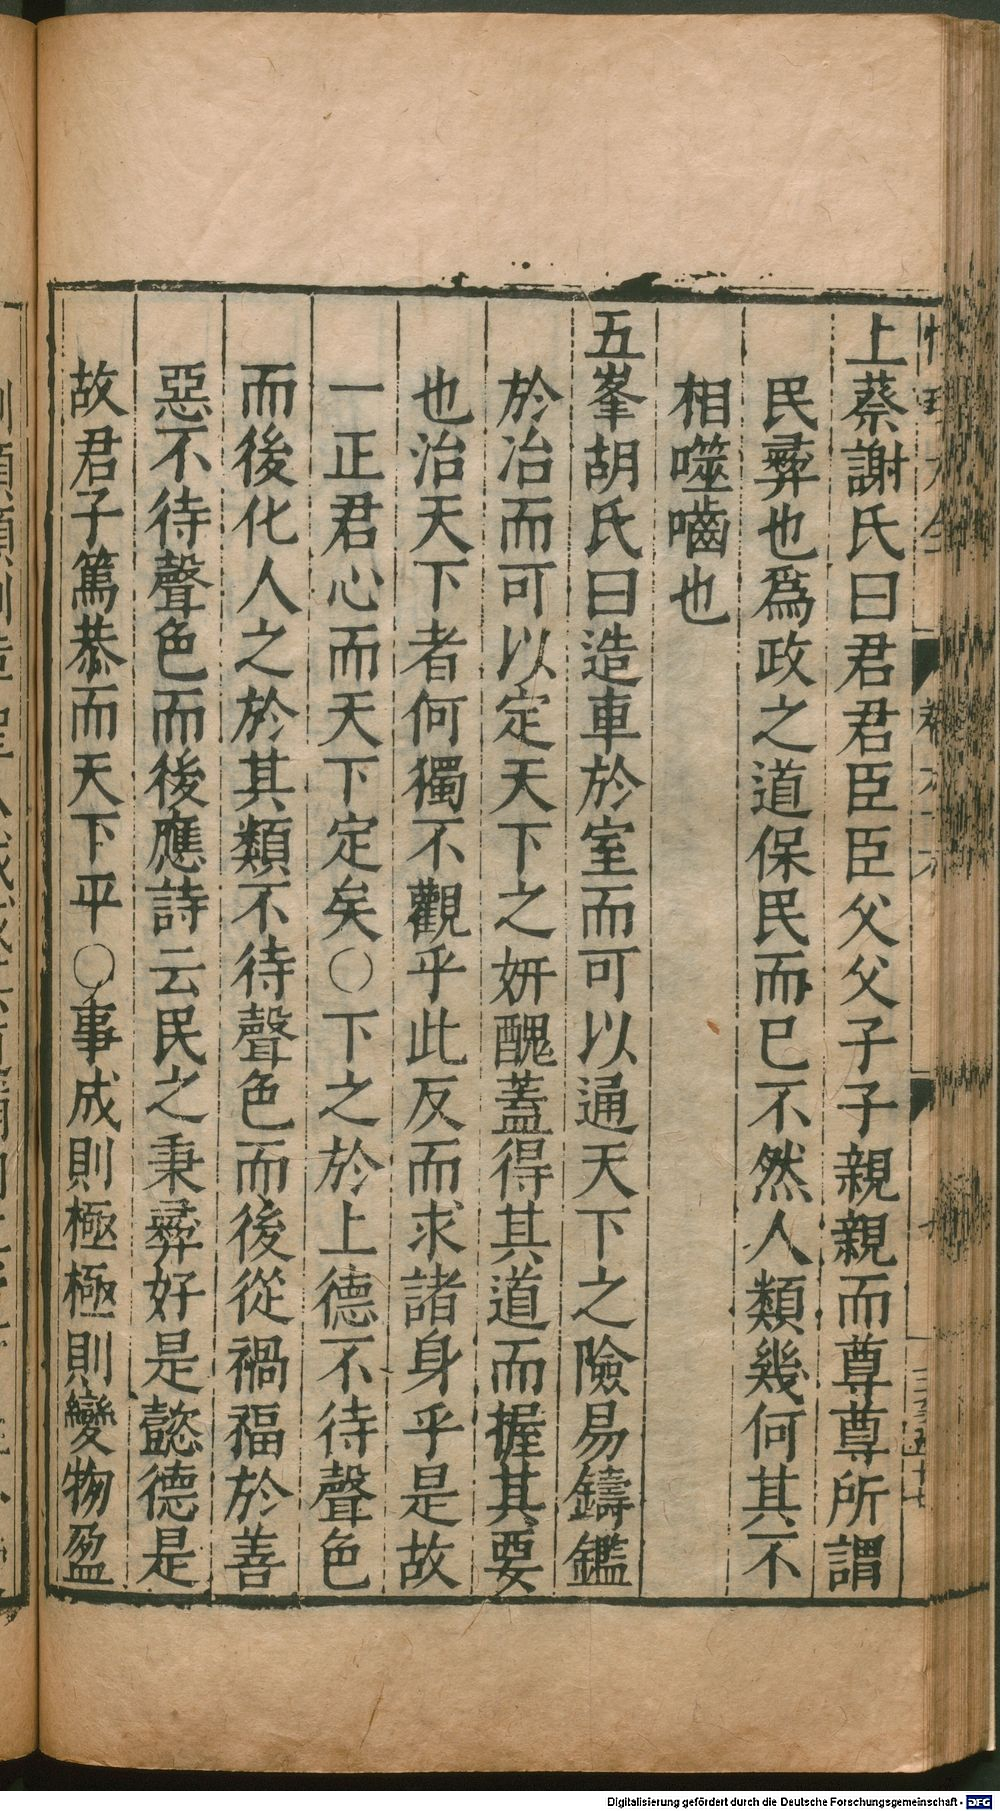 上蔡謝氏曰君君臣臣父父子子親親而尊尊所謂
民彛也爲政之道保民而已不然人類幾何其不
相噬嚙也
五峯胡氏曰造車於室而可以通天下之險易鑄鑑
於冶而可以定天下之妍醜蓋得其道而握其要
也治天下者何獨不觀乎此反而求諸身乎是故
一正君心而天下定矣○下之於上德不待聲色
而後化人之於其類不待聲色而後從禍福於善
惡不待聲色而後應詩云民之秉彛好是懿德是
故君子篤恭而天下平○事成則極極則變物盈
Digitalisierung gefördert durch die Deutsche Forschungsgemeinschaft - DFG